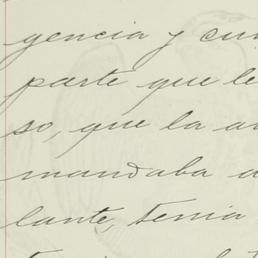 gencia y cum
parte que le
so, que la a
mandaba a
lante, tenia